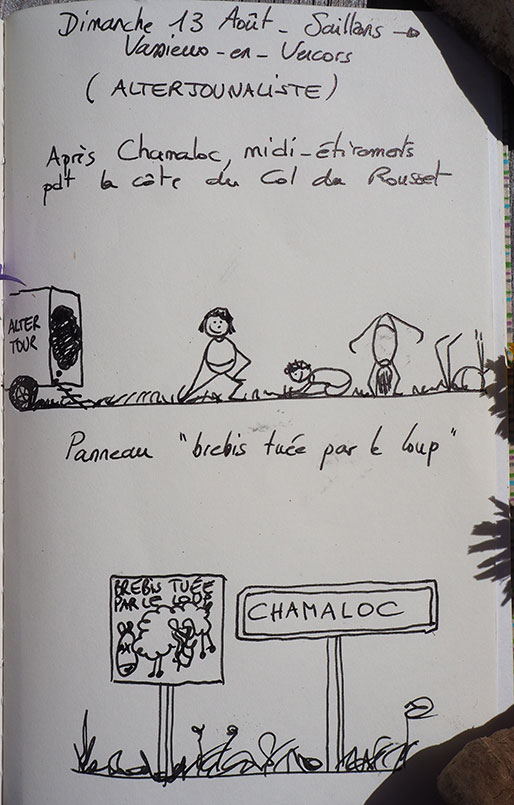 Dimanche 13 Août - Saillans →
Vassieux-en-Vercors
(ALTERJOUNALISTE)
Après Chamaloc, midi-étirements
pdt la côte du Col du Rousset
ALTER
TOUR
Panneau "brebis tuée par le loup"
BREBIS TUÉE
PAR LE LOUP
CHAMALOC